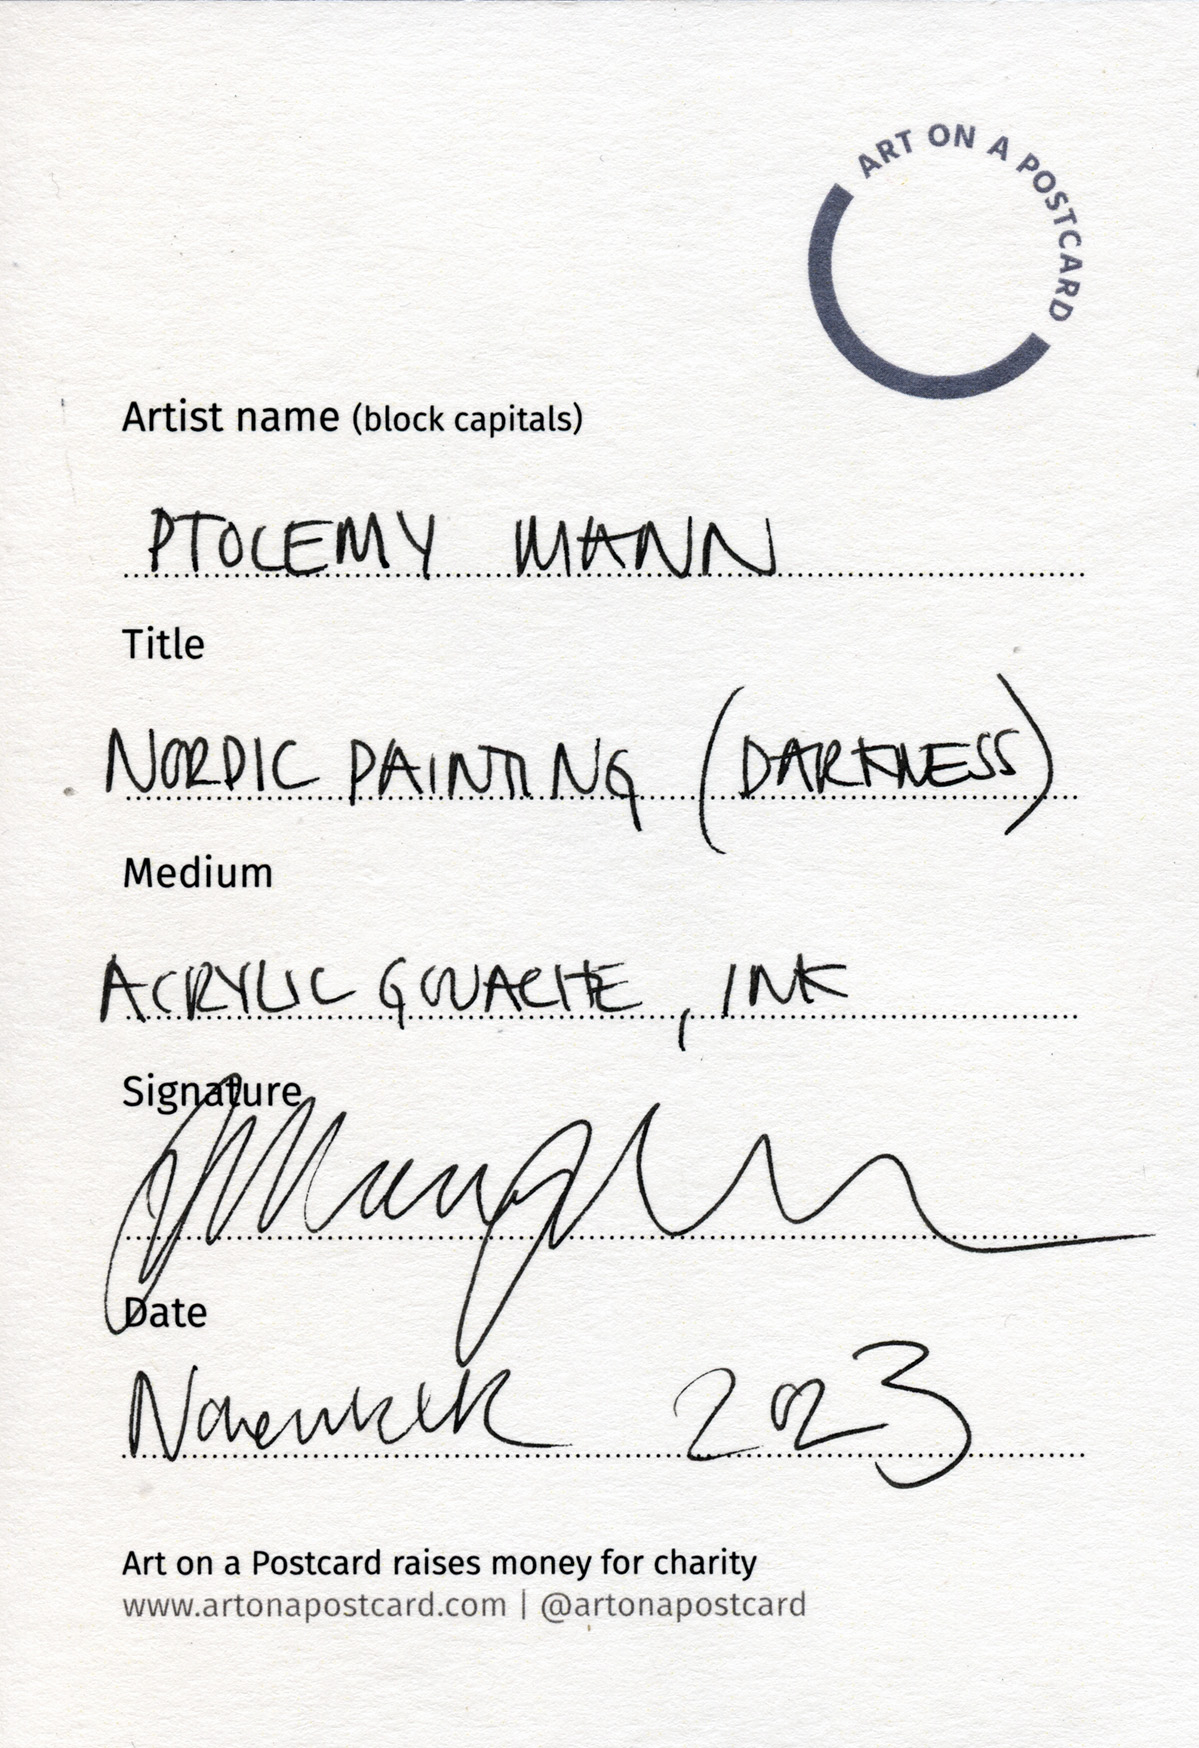 ART ON A POSTCARD
Artist name (block capitals)
PTOLEMY MANN
Title
NORDIC PAINTING (DARKNESS)
Medium
ACRYLIC GOUACHE, INK
Signature
Date
November 2023
Art on a Postcard raises money for charity
www.artonapostcard.com | @artonapostcard